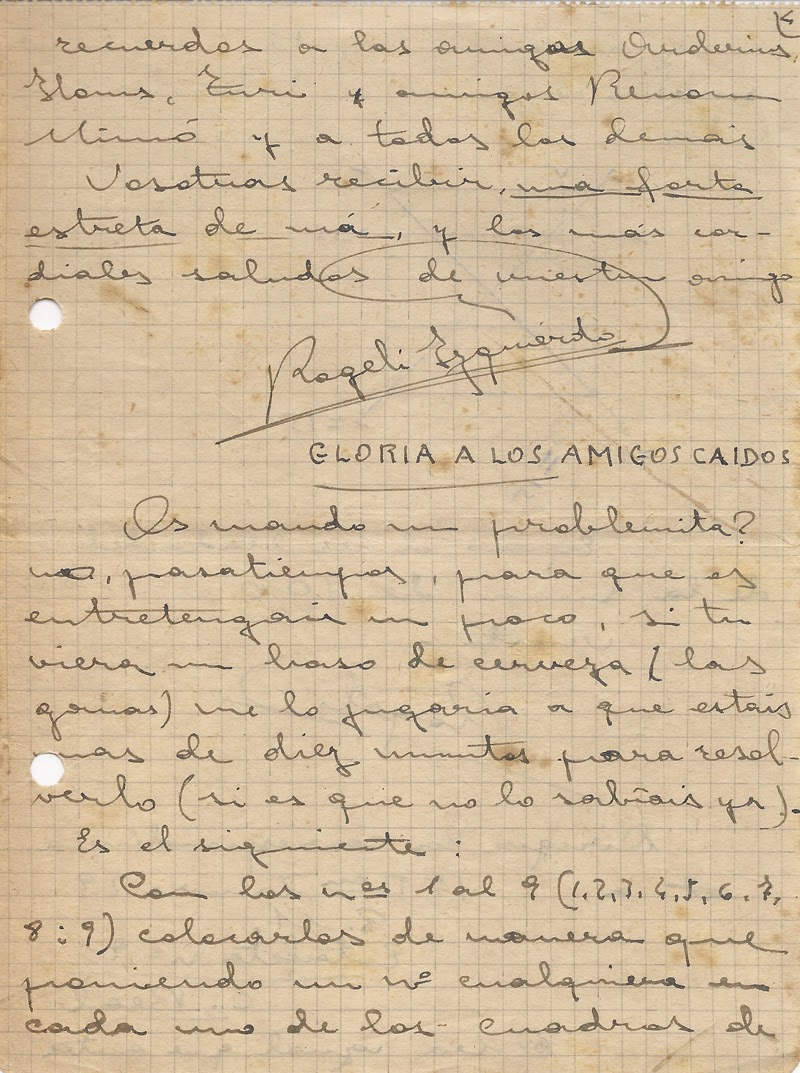 recuerdos a los amigos Arderius,
Homs, Zuri y amigos
Mimó y a todos los demás
Vosotros recibir, una forta
estreta de má, y los más cor-
diales saludos de vuestro amigo
Rogeli Izquierdo
GLORIA A LOS AMIGOS CAIDOS
Os mando un problemita?
no, pasatiempos, para que os
entretengais un poco, si tu
viera un baso de cerveza (las
ganas) me lo jugaria a que estais
mas de diez minutos para resol-
verlo (si es que no lo sabiais ya).
Es el siguiente:
Con los nos 1 al 9 (1, 2, 3, 4, 5, 6, 7,
8 i 9) colocarlos de manera que
poniendo un nº cualquiera en
cada uno de los cuadros de